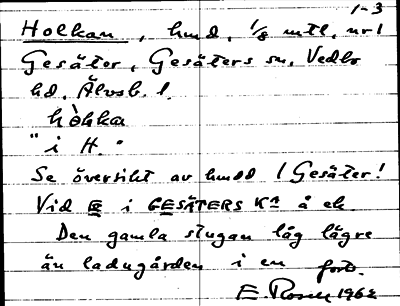 1-3
Holkan, hmd, 1/8 mtl, nr 1
Gesäter, Gesäters sn, Vedbo
hd, Älvsb. l.
hò̀hka
" i H. "
Se översikt av hmdd i Gesäter!
Vid E i GESÄTERS Ka å ek.
Den gamla stugan låg lägre
än ladugården i en ford.
E Rosen 1962